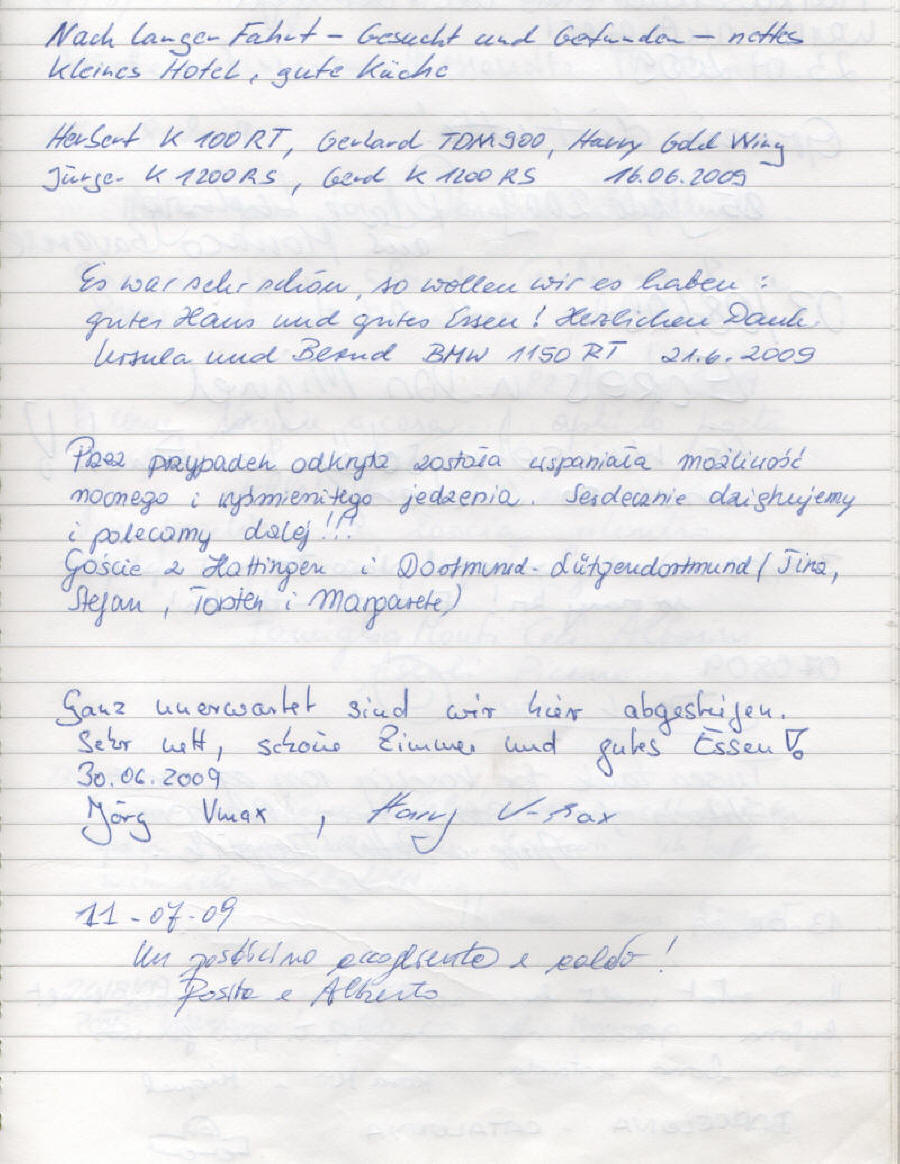 Nach langer Fahrt - Gesucht und Gefunden - nettes
kleines Hotel, gute Küche
Herbert K 100RT, Gerhard TDM900, Harry Gold Wing
Jürgen K 1200RS, Gerd K 1200 RS 16.06.2009
Es war sehr schön, so wollen wir es haben:
gutes Haus und gutes Essen! Herzlichen Dank.
Ursula und Bernd BMW 1150 RT 21.6.2009
Przez przypadek odkryta została wspaniała możliwość
nocnego i wyśmienitego jedzenia. Serdecznie dziękujemy
i polecamy dalej!!!
Goście z Hattingen i Dortmund-Lütgendortmund (Tina,
Stefan, Torsten i Margarete)
Ganz unerwartet sind wir hier abgestiegen.
Sehr nett, schöne Zimmer und gutes Essen!
30.06.2009
Jörg Vmax, Harry V-Max
11-07-09
Un posticino accogliente e caldo!
Rosita e Alberto